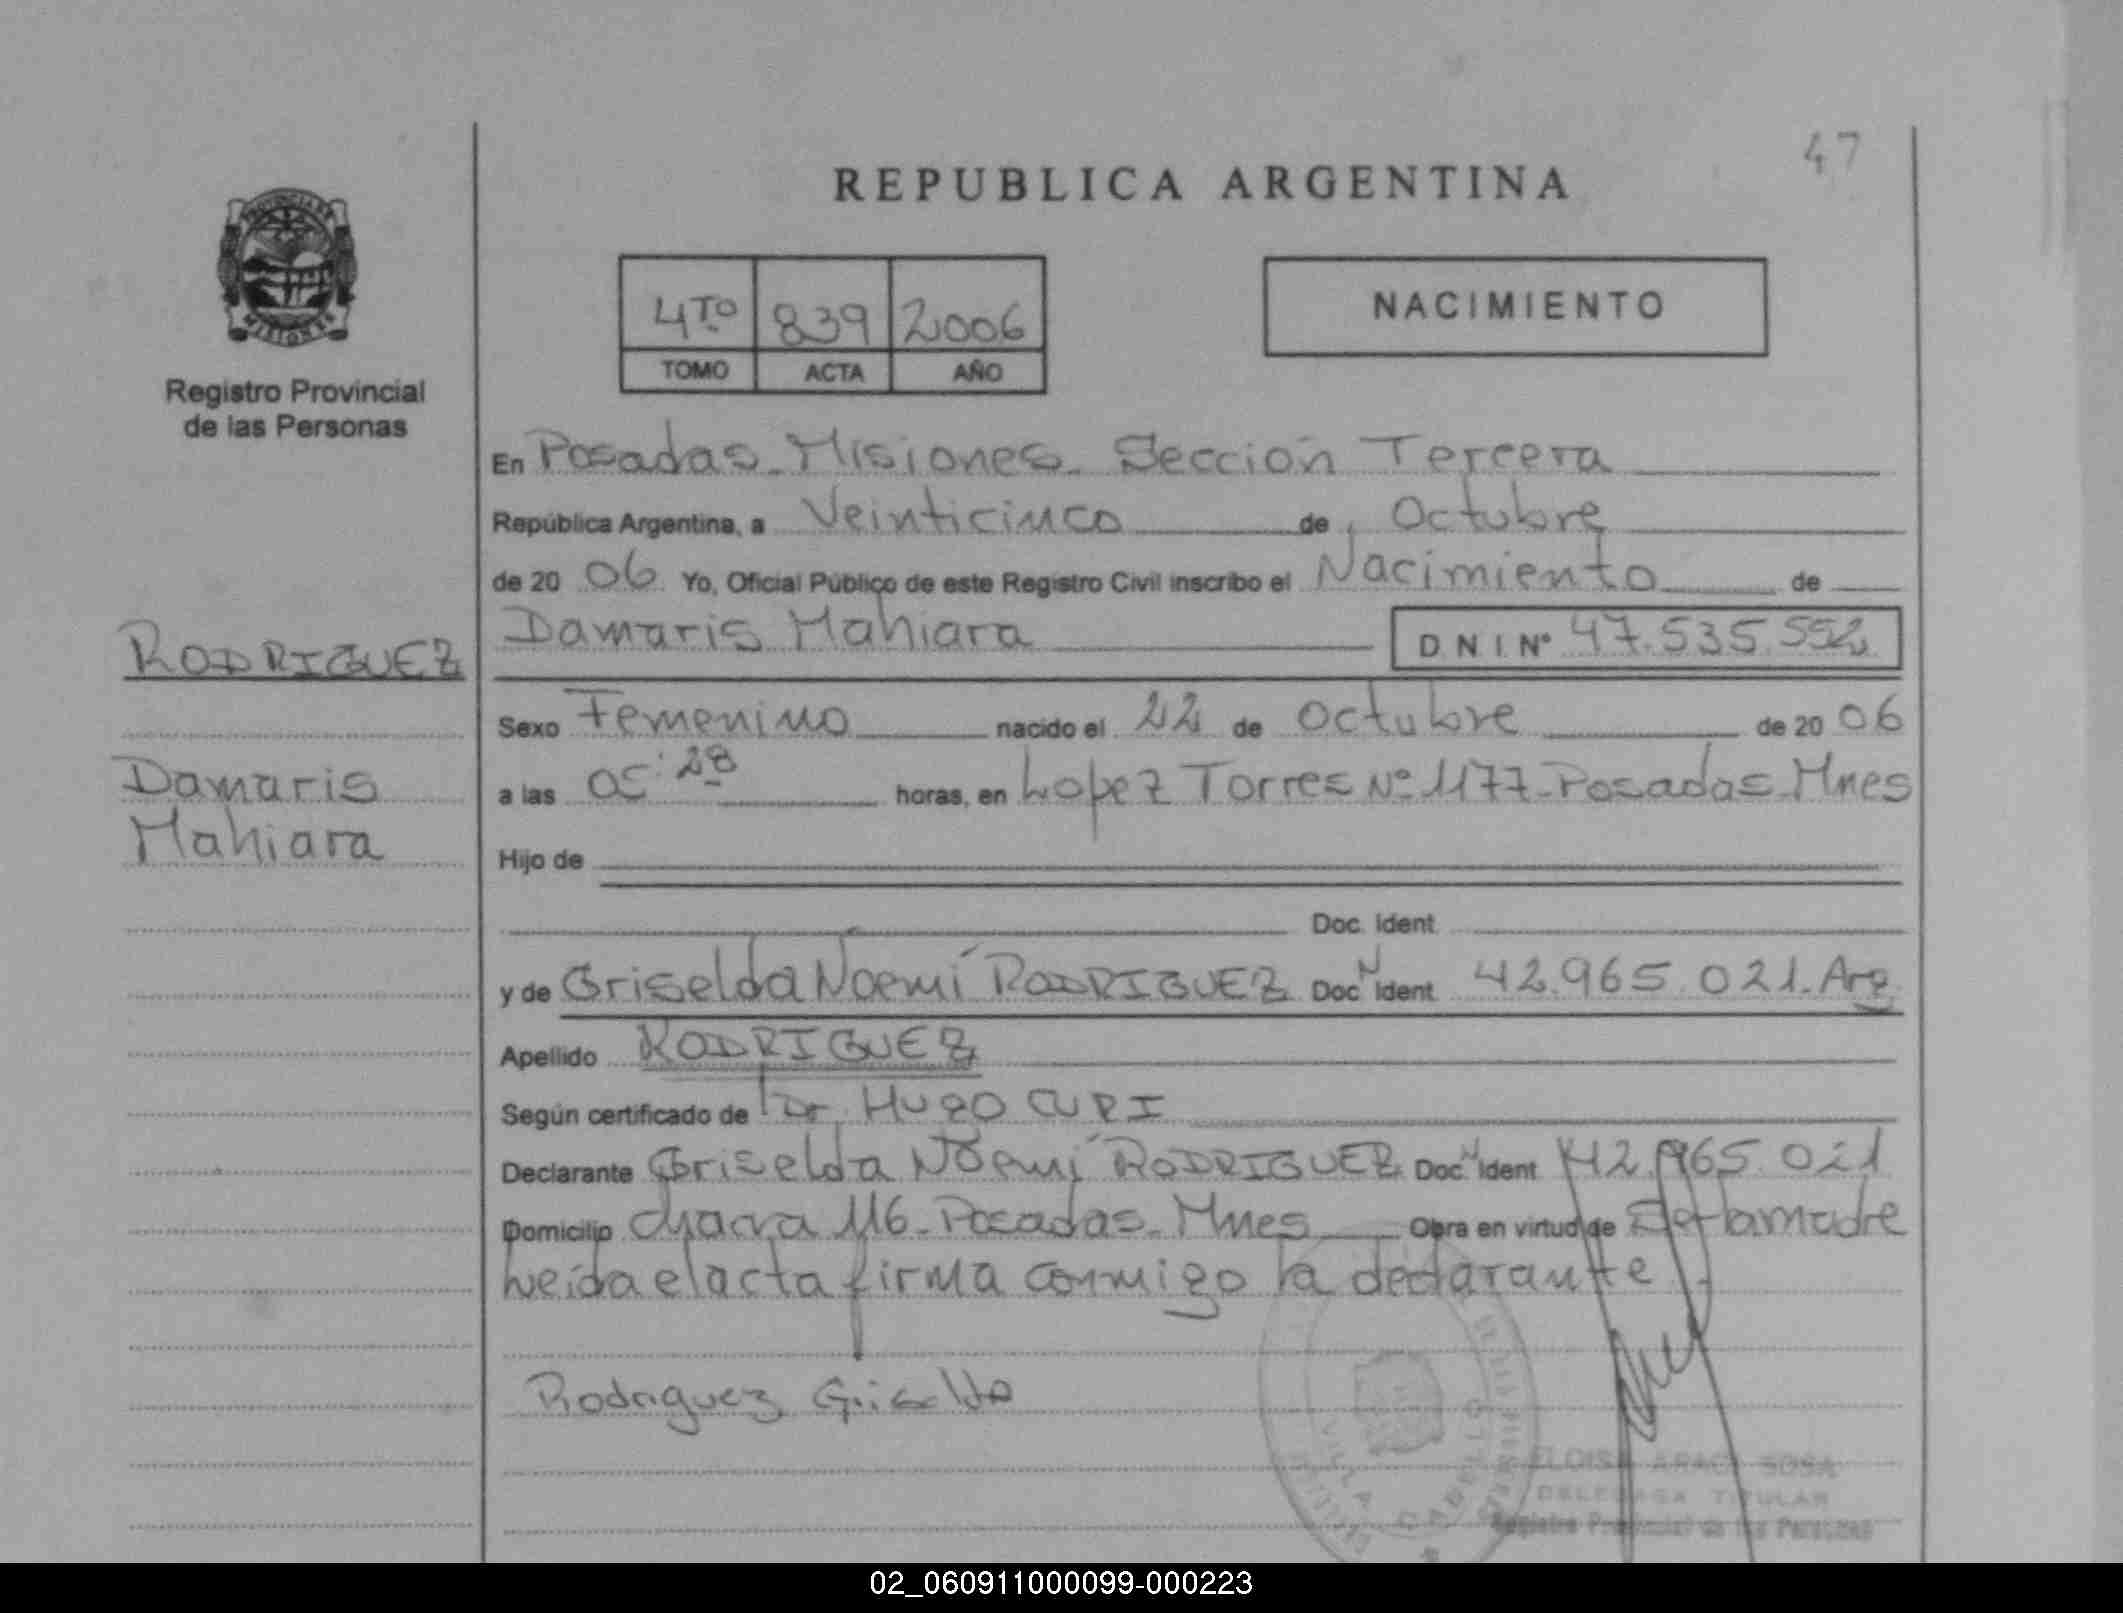 47
REPUBLICA ARGENTINA
PROVINCIA DE
MISIONES
Registro Provincial
de las Personas
4TO 839 2006
TOMO ACTA AÑO
NACIMIENTO
En Posadas - Misiones - Sección Tercera
República Argentina, a Veinticinco de Octubre
de 20 06 Yo, Oficial Público de este Registro Civil inscribo el Nacimiento de
RODRIGUEZ
Damaris Mahiara D.N.I. Nº 47.535.552
Sexo Femenino nacido el 22 de Octubre de 20 06
Damaris
Mahiara
a las 28 horas, en Lopez Torres Nº 1177 - Posadas - Mnes
Hijo de
Doc. Ident.
y de Griselda Noemí RODRIGUEZ Doc N Ident 42.965.021. Arg
Apellido RODRIGUEZ
Según certificado de Dr. HUGO CURI
Declarante Griselda Noemí RODRIGUEZ Doc N Ident 42.965.021
Domicilio chacra 116 - Posadas - Mnes Obra en virtud de Ser la madre
Leída el acta firma conmigo la declarante
Rodriguez Griselda
VILLA CABELLO
ELOISA ARACI SOSA
DELEGADA TITULAR
Registro Provincial de las Personas
02_060911000099-000223